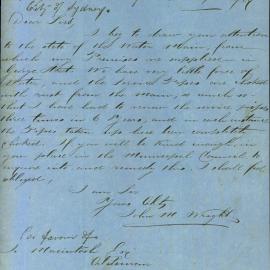 City of Sydney
Dear Sir,
I beg to draw your attention
to the state of the Water Main, from
which my Premises are supplied in
George Street. We have very little force of
water, and the service Pipes are choked
with rust from the main, so much so
that I have had to renew the service pipes
three times in 6 Years, and in each instance
the Pipes taken up have been completely
choked. If you will be kind enough, in
your place in the Municipal Council to
inquire into and remedy this, I shall feel
obliged,
I am Sir
Yours Obtly
John M. Wright
Macintosh Esq
Alderman